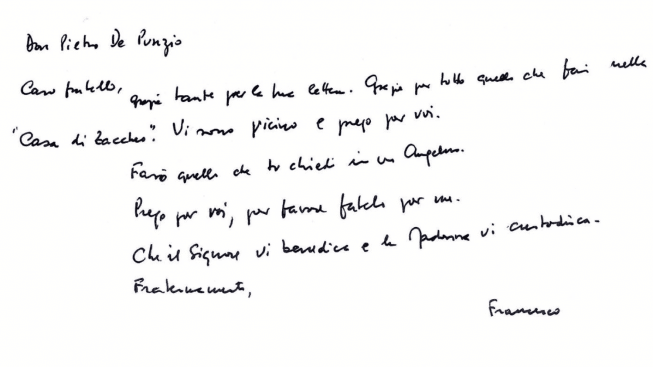 Don Pietro De Punzio
Caro fratello, grazie tante per la tua lettera. Grazie per tutto quello che fai nella
"Casa di Zaccheo". Vi sono vicino e prego per voi.
Farò quello che tu chiedi in un Angelus.
Prego per voi, per favore fatelo per me.
Che il Signore vi benedica e la Madonna vi custodisca.
Fraternamente,
Francesco